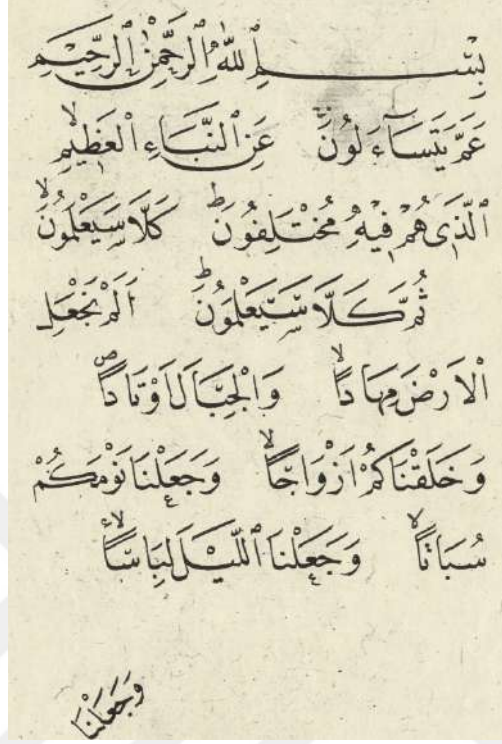 بِسْمِ اللّٰهِ الرَّحْمٰنِ الرَّحِيْمِ
عَمَّ يَتَسَآءَلُوْنَ عَنِ النَّبَاءِ الْعَظِيْمِۙ
الَّذٖى هُمْ فٖيهِ مُخْتَلِفُوْنَۜ كَلَّا سَيَعْلَمُوْنَۙ
ثُمَّ كَلَّا سَيَعْلَمُوْنَ اَلَمْ نَجْعَلِ
الْاَرْضَ مِهَادًاۙ وَالْجِبَالَ اَوْتَادًا
وَخَلَقْنَاكُمْ اَزْوَاجًاۙ وَجَعَلْنَا نَوْمَكُمْ
سُبَاتًاۙ وَجَعَلْنَا اللَّيْلَ لِبَاسًاۙ
وَجَعَلْنَا